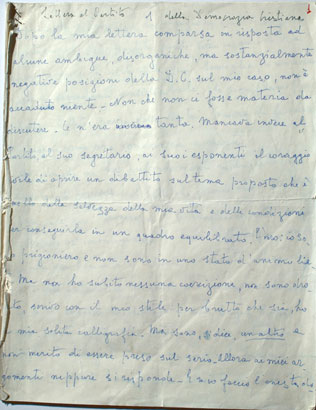 Lettera al Partito della Democrazia Cristiana
Dopo la mia lettera comparsa in risposta ad
alcune ambigue, disorganiche, ma sostanzialmente
negative posizioni della D.C. sul mio caso, non è
accaduto niente. Non che non ci fosse materia da
discutere. Ce n'era tanta. Mancava invece al
Partito, al suo segretario, ai suoi esponenti il coraggio
civile di aprire un dibattito sul tema proposto che è
quello della salvezza della mia vita e delle condizioni
per conseguirla in un quadro equilibrato. È vero: io sono
prigioniero e non sono in uno stato d'animo lieto.
Ma non ho subito nessuna coercizione, non sono drogato,
scrivo con il mio stile per brutto che sia, ho
la mia solita calligrafia. Ma sono, si dice, un altro e
non merito di essere preso sul serio. Allora ai miei ar
gomenti neppure si risponde. E se io faccio l'onesta do